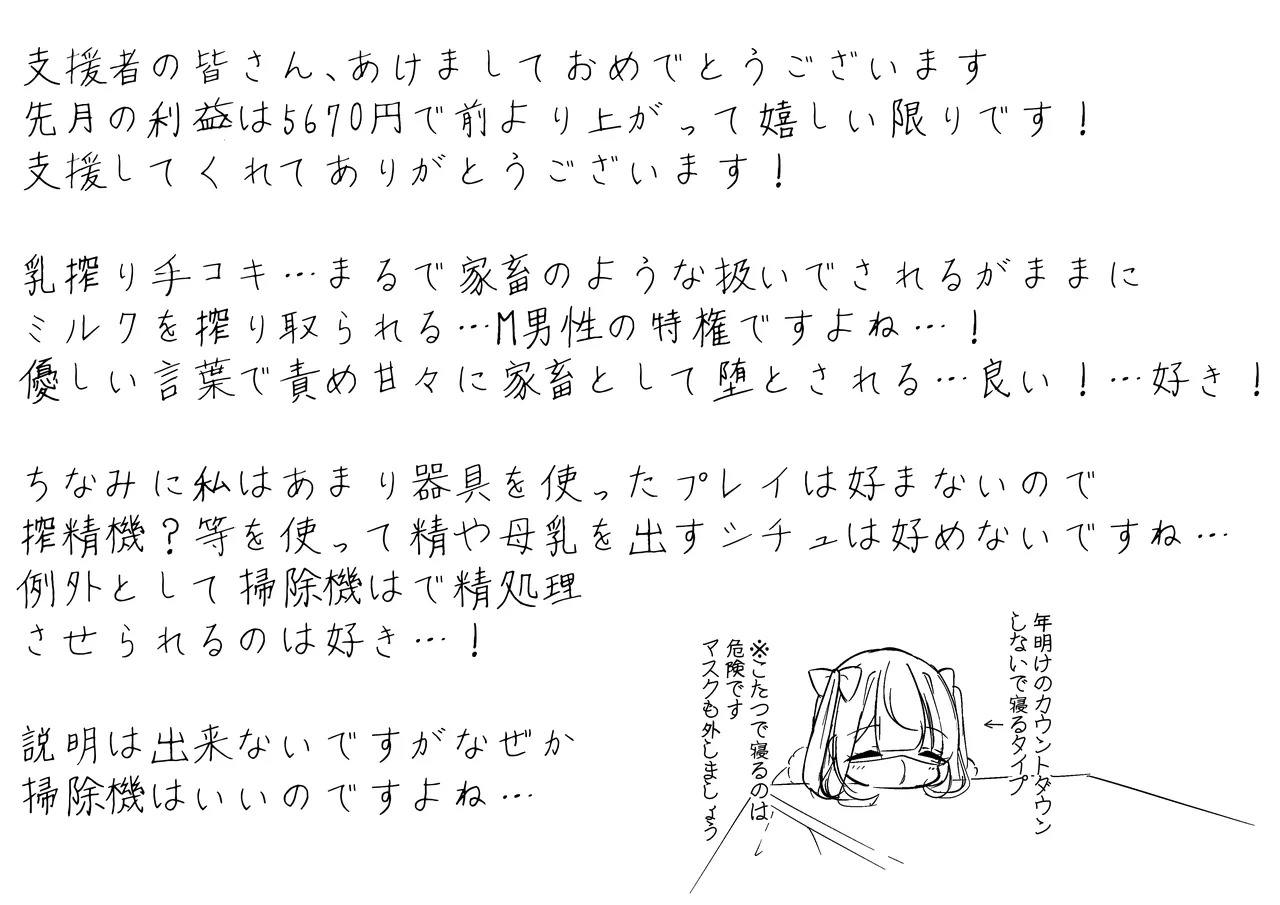 支援者の皆さん、あけましておめでとうございます
先月の利益は5670円で前より上がって嬉しい限りです！
支援してくれてありがとうございます！
乳搾り手コキ…まるで家畜のような扱いでされるがままに
ミルクを搾り取られる…M男性の特権ですよね…！
優しい言葉で責め甘々に家畜として堕とされる…良い！…好き！
ちなみに私はあまり器具を使ったプレイは好まないので
搾精機？等を使って精や母乳を出すシチュは好めないですね…
例外として掃除機はで精処理
させられるのは好き…！
説明は出来ないですがなぜか
掃除機はいいのですよね…
年明けのカウントダウン
しないで寝るタイプ
←
※こたつで寝るのは
危険です
マスクも外しましょう